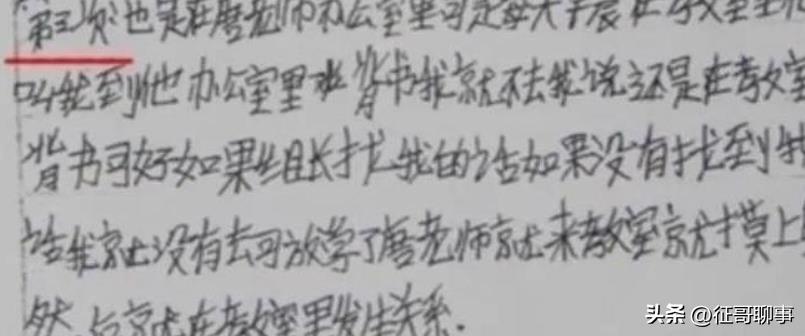 第三次也是在唐老师办公室里可是每天早晨在教室里
叫我到他办公室里 背书我就不去我说还是在教室
背书可好如果组长找我的话如果没有找到我
话我就没有去可放学了唐老师就来教室就摸上
然后就在教室里发生关系.
头条 @征哥聊事